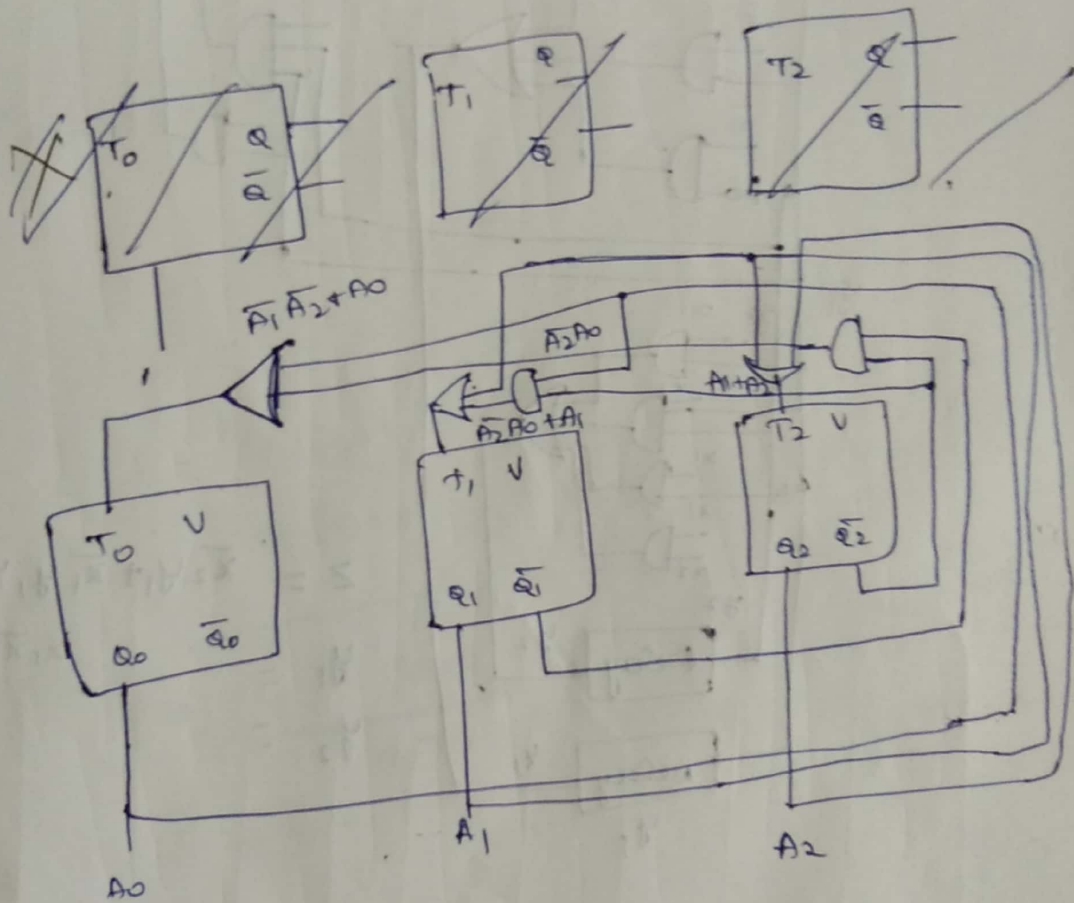 T0 Q
Q̄
T1 Q
Q̄
T2 Q
Q̄
Ā1Ā2+A0
Ā2A0
A1+A2
Ā2A0+A1
T0 V
Q0 Q̄0
T1 V
Q1 Q̄1
T2 V
Q2 Q̄2
A0
A1
A2